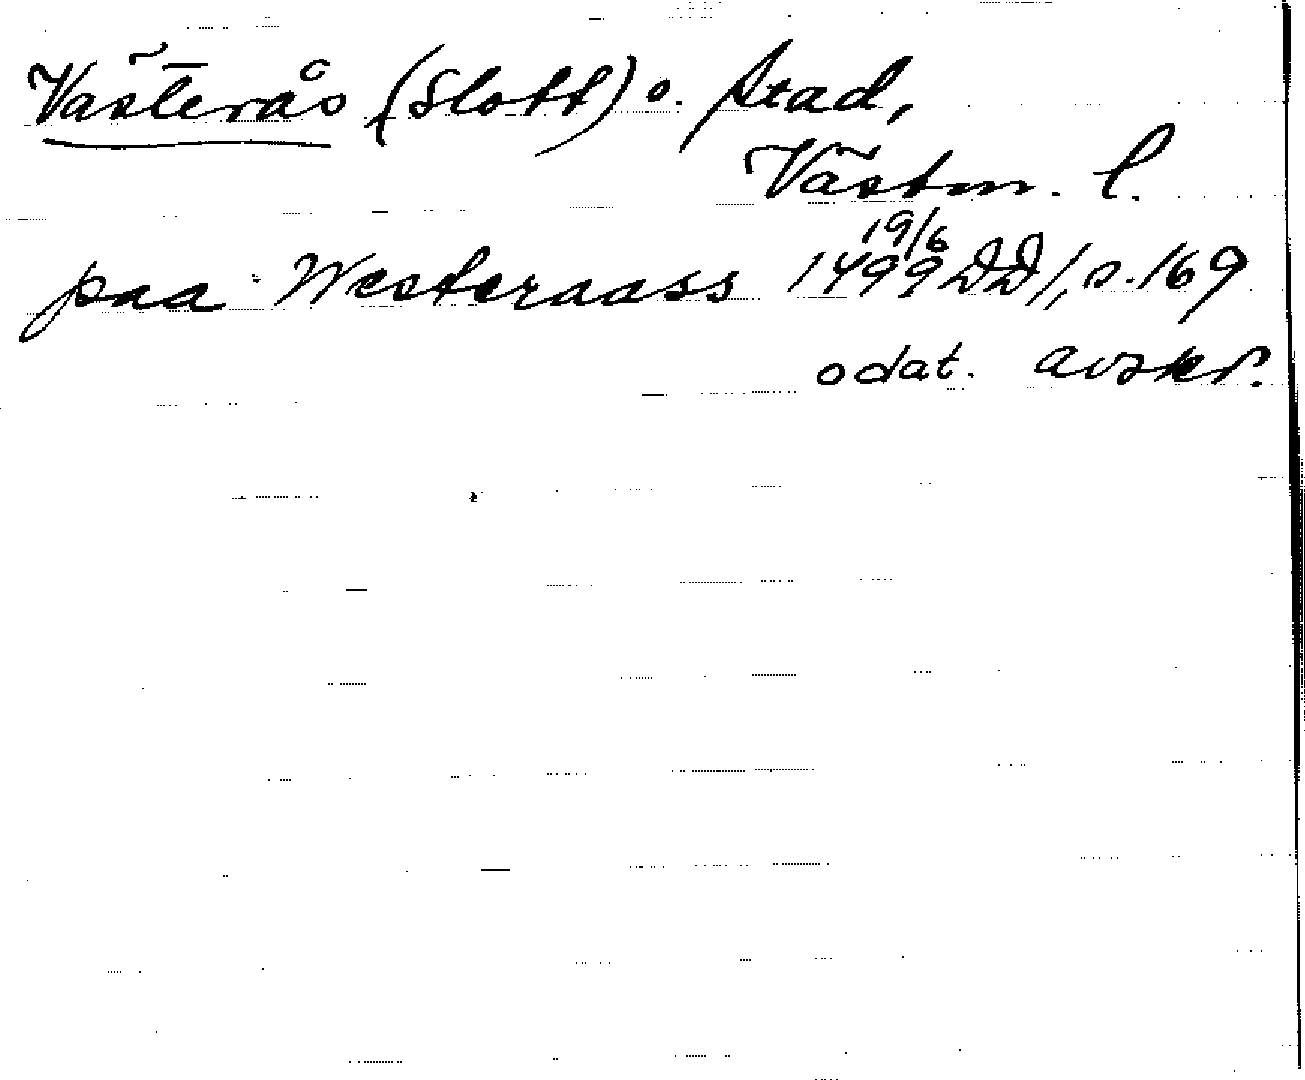 Västerås (Slott) o. stad,
Västm. l.
paa Westeraass 19/6 1499 DD 1, s. 169
odat. avskr.